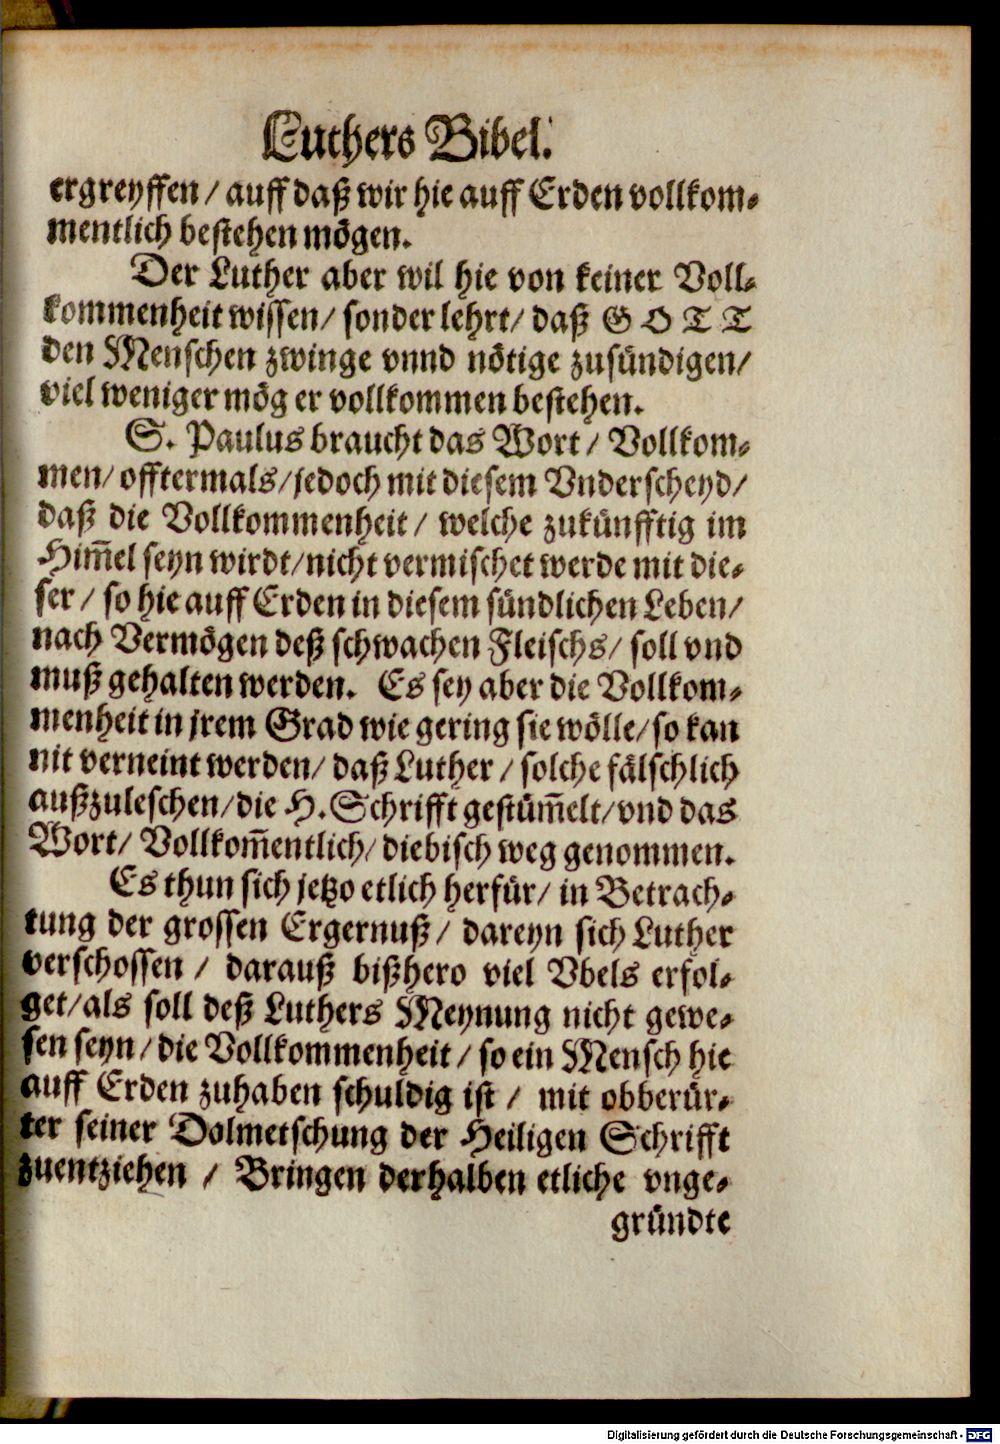 Luthers Bibel.
ergreyffen / auff daß wir hie auff Erden vollkom⸗
mentlich bestehen mögen.
Der Luther aber wil hie von keiner Voll⸗
kommenheit wissen / sonder lehrt / daß GOTT
den Menschen zwinge vnnd nötige zusündigen /
viel weniger mög er vollkommen bestehen.
S. Paulus braucht das Wort / Vollkom⸗
men / offtermals / jedoch mit diesem Vnderscheyd /
daß die Vollkommenheit / welche zukünfftig im
Him̃el seyn wirdt / nicht vermischet werde mit die⸗
ser / so hie auff Erden in diesem sündlichen Leben /
nach Vermögen deß schwachen Fleischs / soll vnd
muß gehalten werden. Es sey aber die Vollkom⸗
menheit in jrem Grad wie gering sie wölle / so kan
nit verneint werden / daß Luther / solche fälschlich
außzuleschen / die H. Schrifft gestüm̃elt / vnd das
Wort / Vollkom̃entlich / diebisch weg genommen.
Es thun sich jetzo etlich herfür / in Betrach⸗
tung der grossen Ergernuß / dareyn sich Luther
verschossen / darauß bißhero viel Vbels erfol⸗
get / als soll deß Luthers Meynung nicht gewe⸗
sen seyn / die Vollkommenheit / so ein Mensch hie
auff Erden zuhaben schuldig ist / mit obberür⸗
ter seiner Dolmetschung der Heiligen Schrifft
zuentziehen / Bringen derhalben etliche vnge⸗
gründte
Digitalisierung gefördert durch die Deutsche Forschungsgemeinschaft - DFG